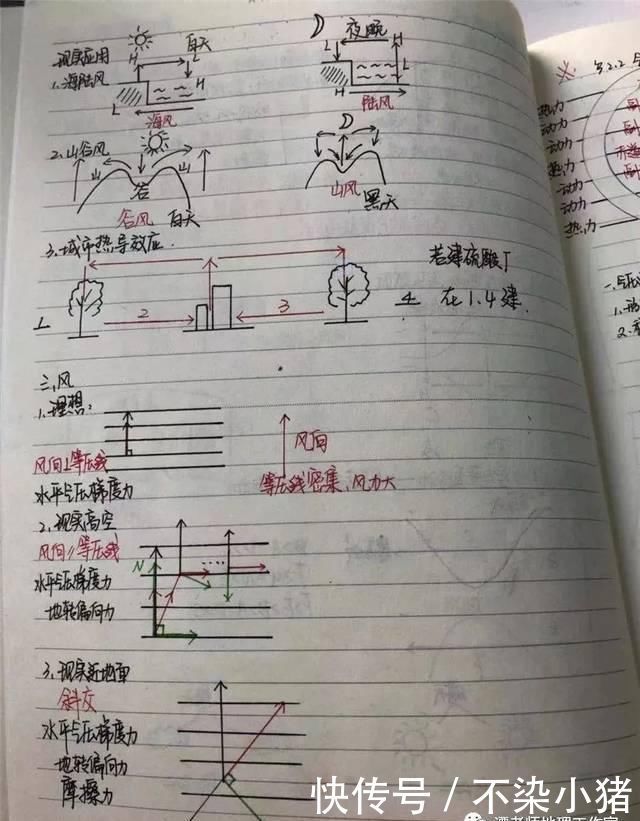 现实应用
1.海陆风
白天
H
L
H
L
海风
夜晚
L
H
L
H
陆风
2.山谷风
山
山
谷
谷风 白天
山风
黑天
3.城市热导效应
若建硫酸厂
在1.4建
1
2
3
4
三、风
1.理想:
风向⊥等压线
水平气压梯度力
风向
等压线密集,风力大
2.现实高空
风向∥等压线
水平气压梯度力
地转偏向力
N
3.现实近地面
斜交
水平气压梯度力
地转偏向力
摩擦力
热力
动力
动力
热力
动力
动力
热力
快传号 / 不染小猪